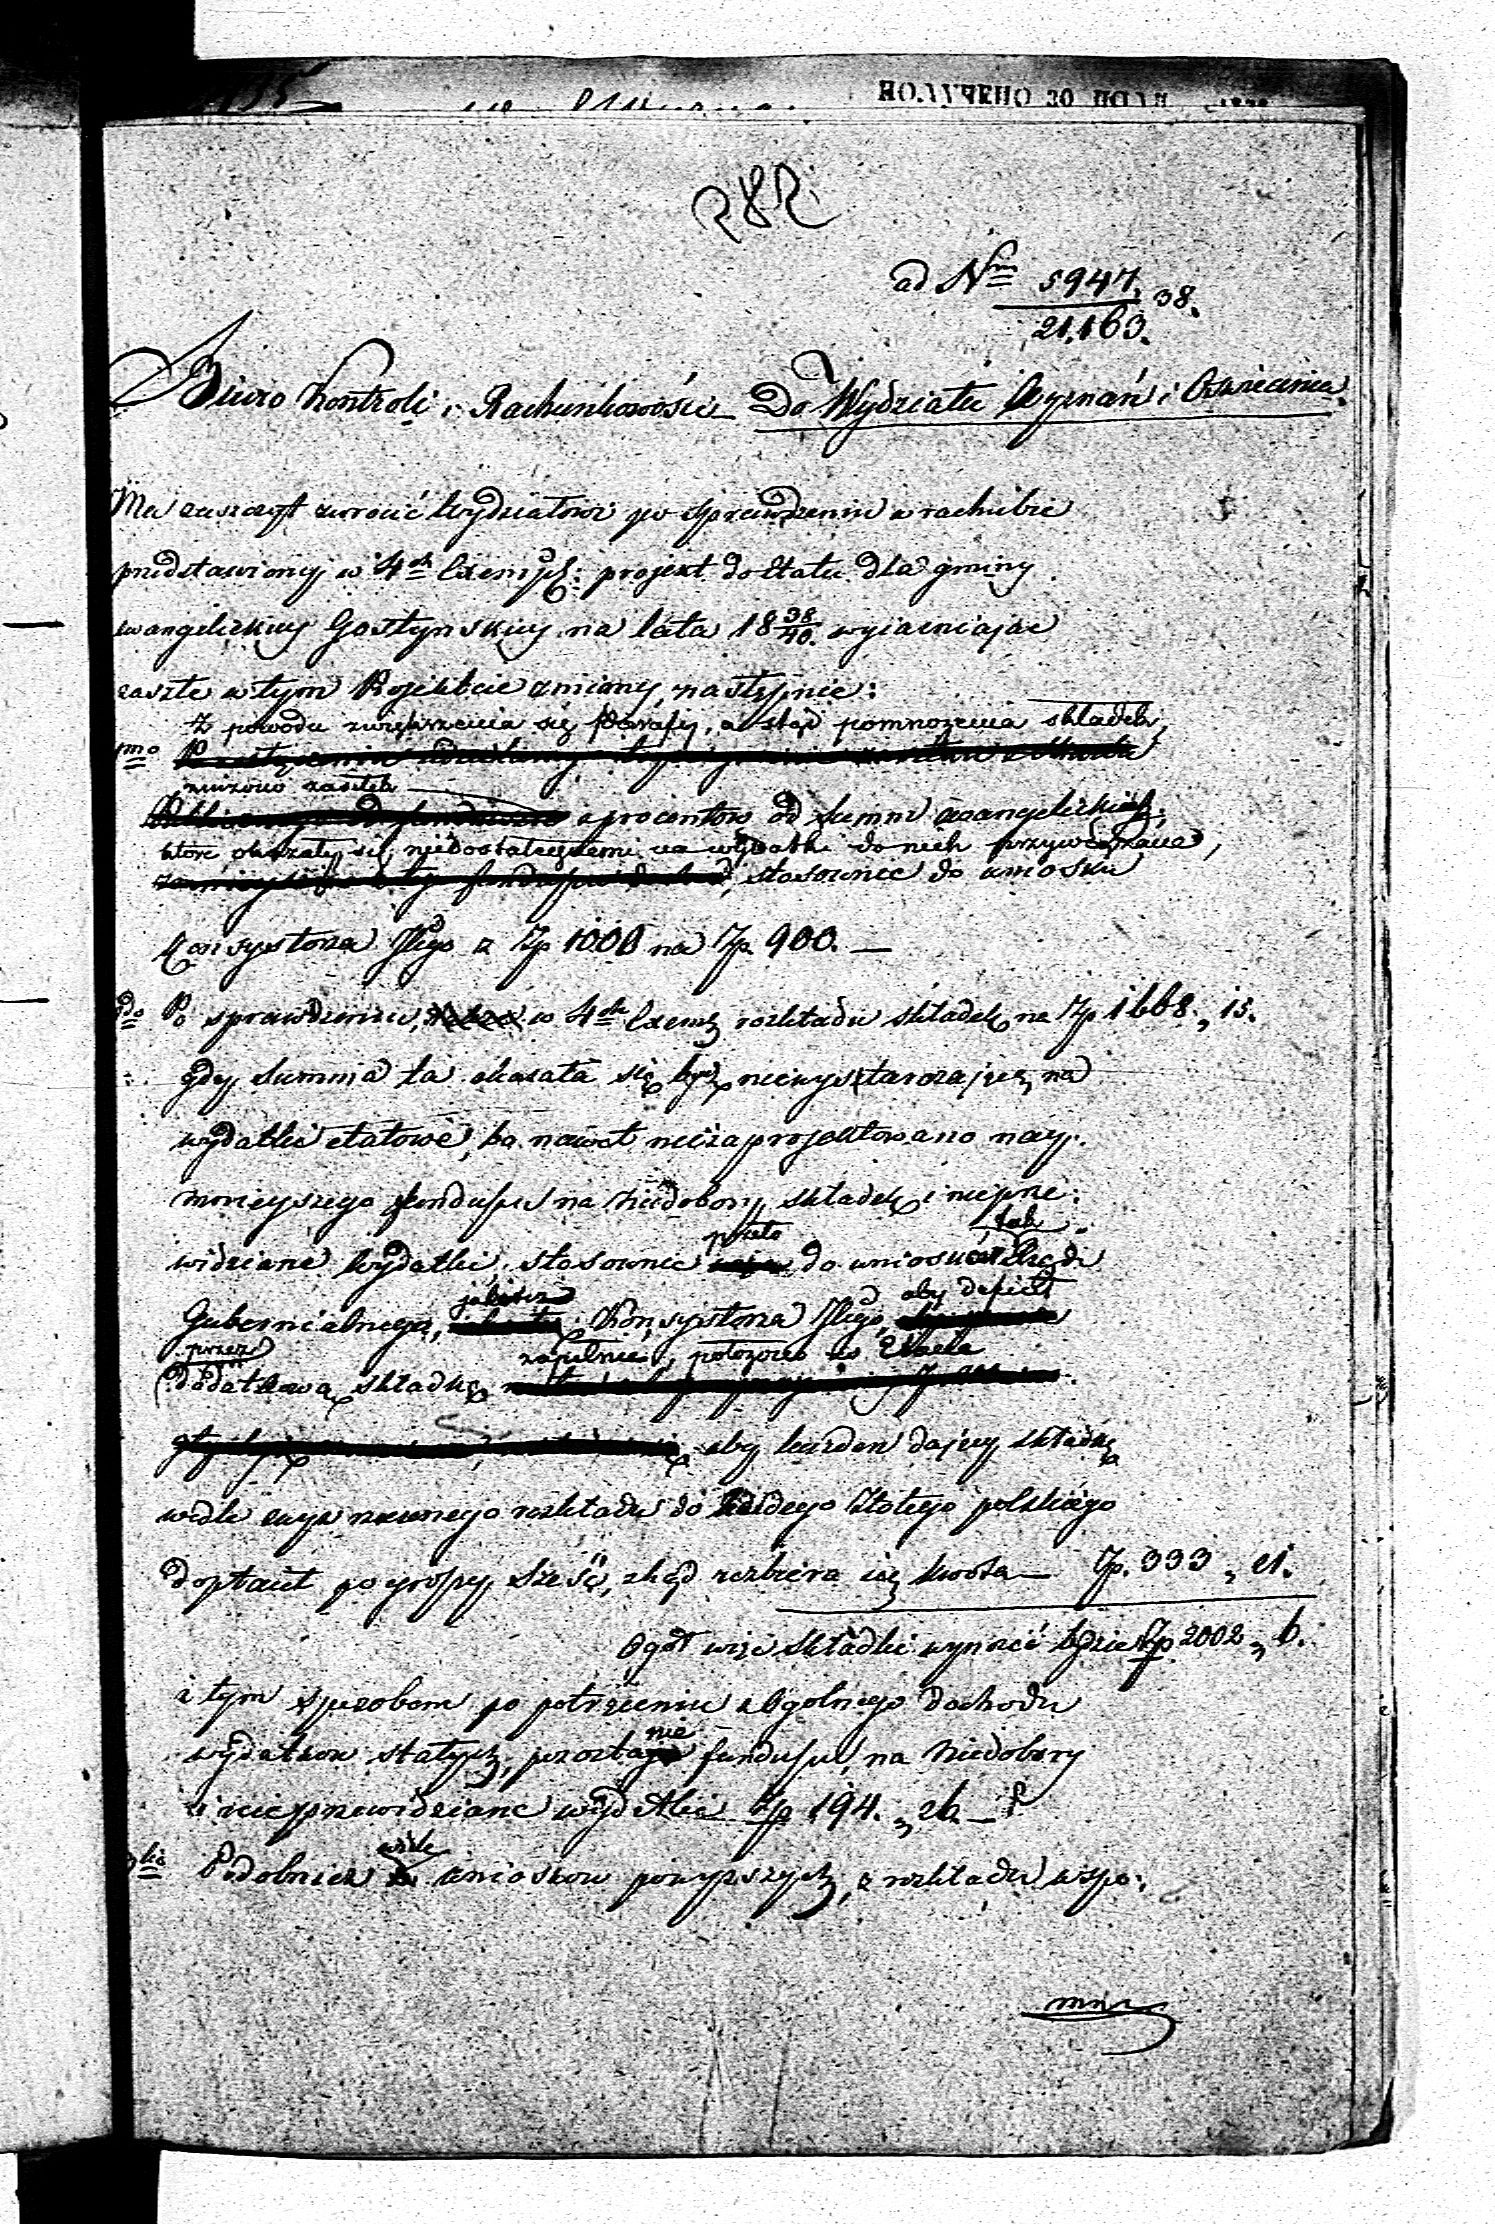 ПОЛУЧЕНО 30
282
ad Nrm 5947. 38.
21,163.
Biuro Kontroli i Rachunkowości Do Wydziału Wyznań i Oświecenia.
Ma zaszczyt zwrócić Wydziałowi po sprawdzeniu w rachubie
przedstawiony w 4ch Exempl: projekt do Etatu dla gminy
ewangelickiey Gostynskiey na lata 18 38/40. wyiaśniaiąc
zaszłe w tym Projekcie zmiany następnie:
Z powodu zwiększenia się Parafij, a stąd pomnożenia składek,
1mo
zniżono zasiłek
z procentow od Summ ewangelickich,
które okazały się niedostatecznemi na wydatki do nich przywiązane,
stosownie do wniosku
Konsystorza Jlgo z Zp 1000 na Zp 900. —
2do Po sprawdzeniu, w 4ch Exempl rozkładu składek na Zp 1668. „ 15.
gdy Summa ta okazała się być niewystarczaiącą na
wydatki etatowe, bo nawet niezaprojektowano nay-
mnieyszego funduszu na niedobory składek i nieprze-
widziane wydatki, stosownie przeto do wniosków tak Rządu
Gubernialnego, jakoteż Konsystorza Jlgo, aby deficit
przez
dodatkową składkę zapełnić, położono w Etacie
aby każden dający składkę
wedle wyrzeczonego rozkładu do każdego Złotego polskiego
dopłacił po groszy sześć, zkąd uzbiera się kwota — Zp. 333 „ 21.
Ogół więc składki wynosić będzie Zp. 2002 „ 6.
i tym sposobem po potrąceniu z Ogólnego dochodu
wydatkow stałych, pozostanie fundusz na niedobory
i nieprzewidziane wydatki Zp 194. „ 26. —
3tio Podobnież wedle wniosków powyższych, z rozkładu wspo-